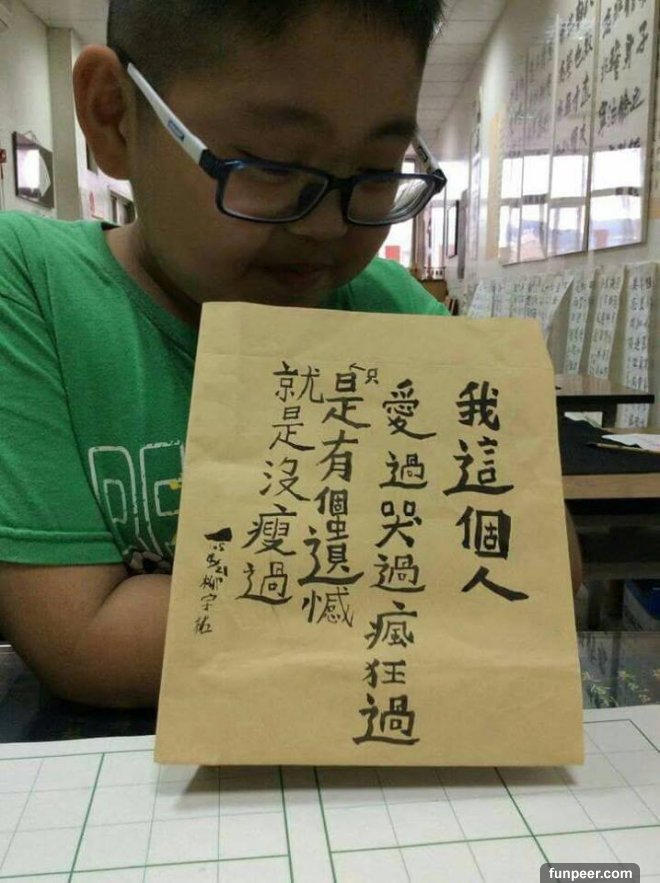 我這個人
愛過哭過瘋狂過
只是有個遺憾
就是沒瘦過
柳宇
funpeer.com